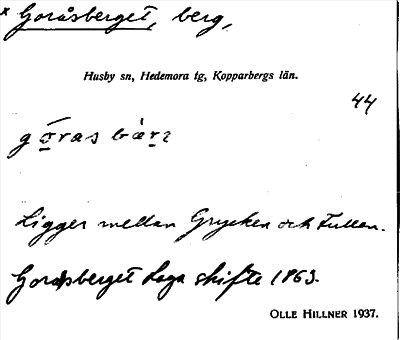 * Goråsberget, berg,
Husby sn, Hedemora tg, Kopparbergs län.
44
Ligger mellan Grycken och Fullen.
Goråsberget Laga skifte 1863.
OLLE HILLNER 1937.